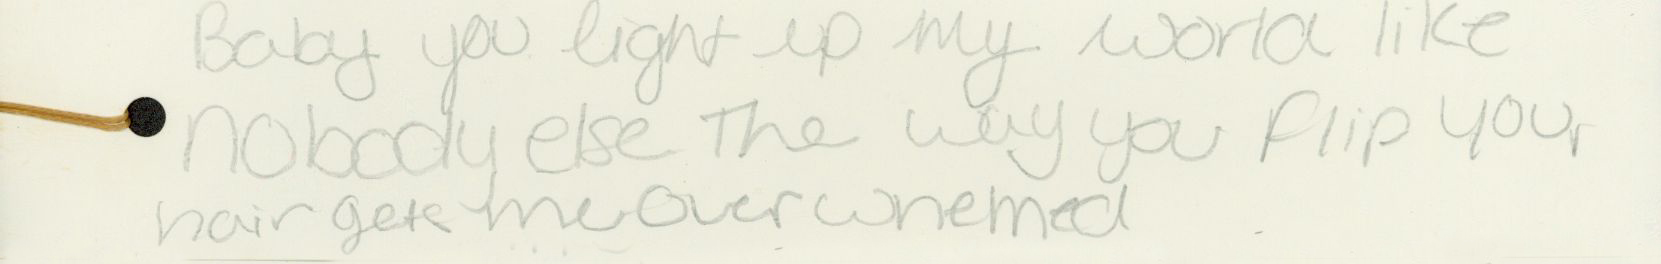 Baby you light up my world like
nobody else The way you flip your
hair gets me overwhemed